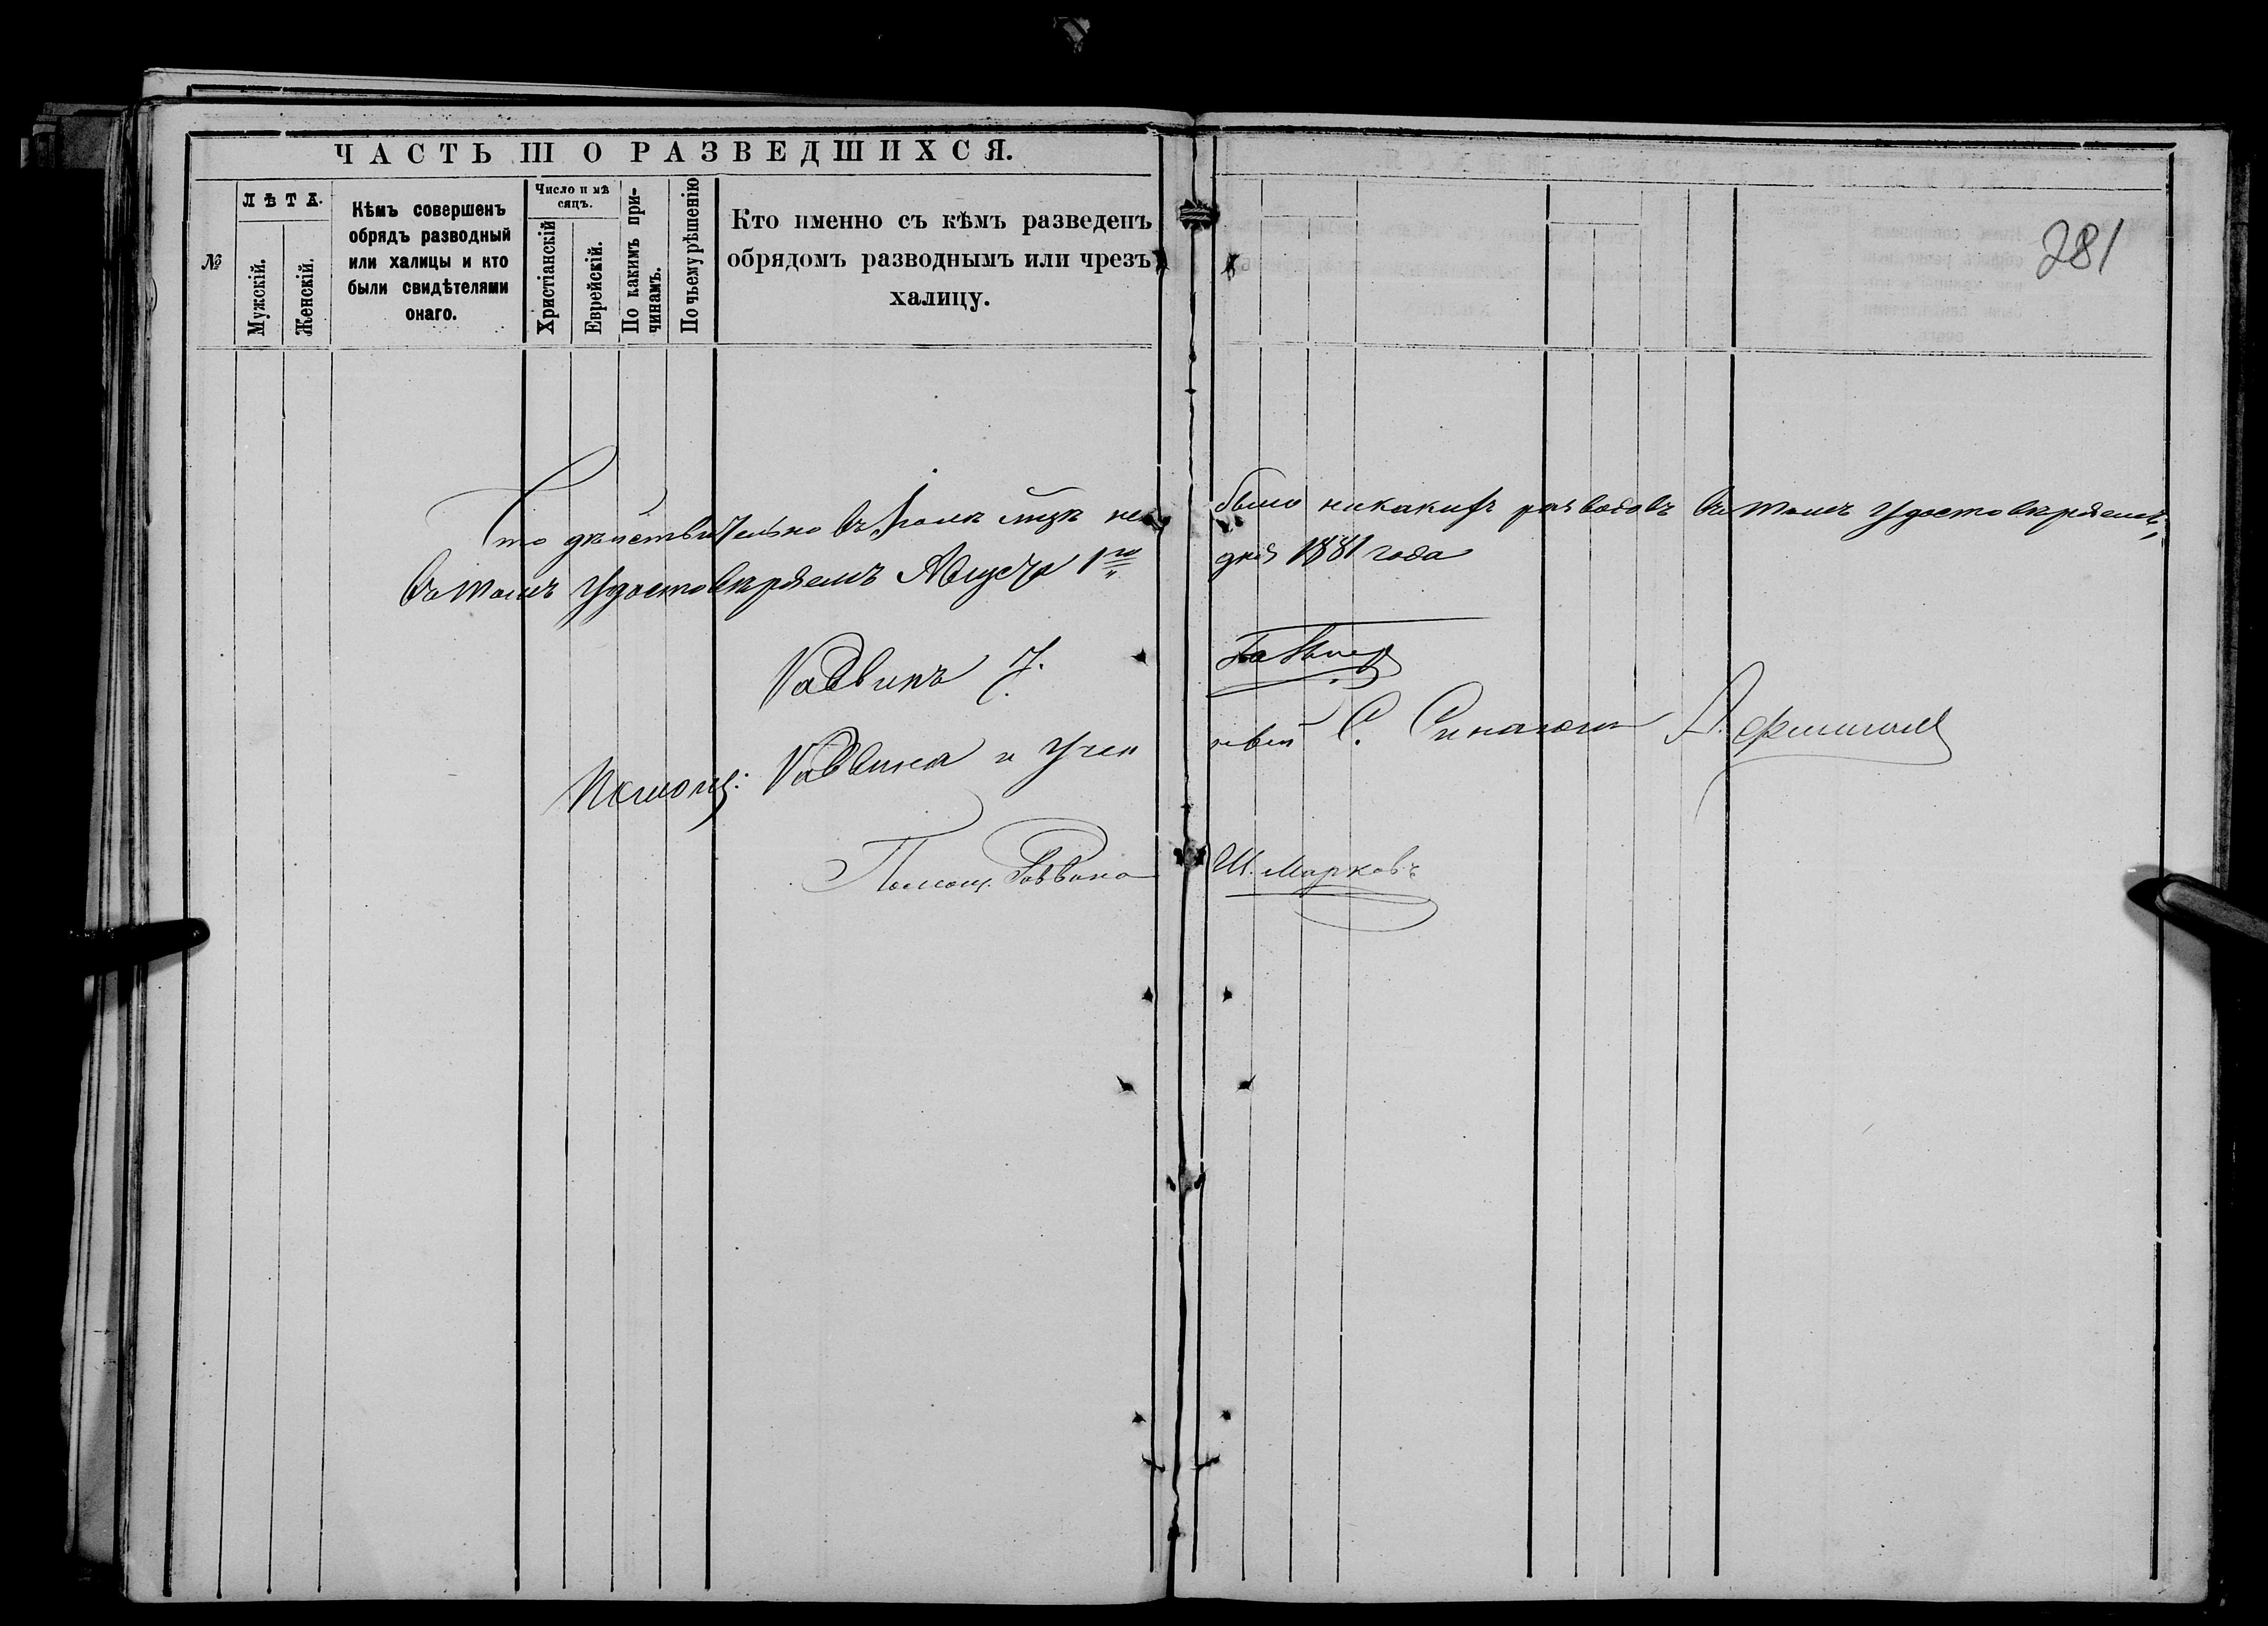 ЧАСТЬ III О РАЗВЕДШИХСЯ.
№
ЛѢТА.
Мужскій.
Женскій.
Кѣмъ совершенъ
обрядъ разводный
или халицы и кто
были свидѣтелями
онаго.
Число и мѣ
сяцъ.
Христіанскій
Еврейскій.
По какимъ при-
чинамъ.
По чьему рѣшенію
Кто именно съ кѣмъ разведенъ
обрядомъ разводнымъ или чрезъ
халицу.
281
Что дѣйствительно въ Іюлѣ мцѣ не было никакихъ разводовъ въ томъ удостовѣряемъ
въ томъ удостовѣряемъ Августа 1го дня 1881 года
Раввинъ
Помощ: Раввина и Учен
С. А.
Помощ. Раввина Ш. Марковъ